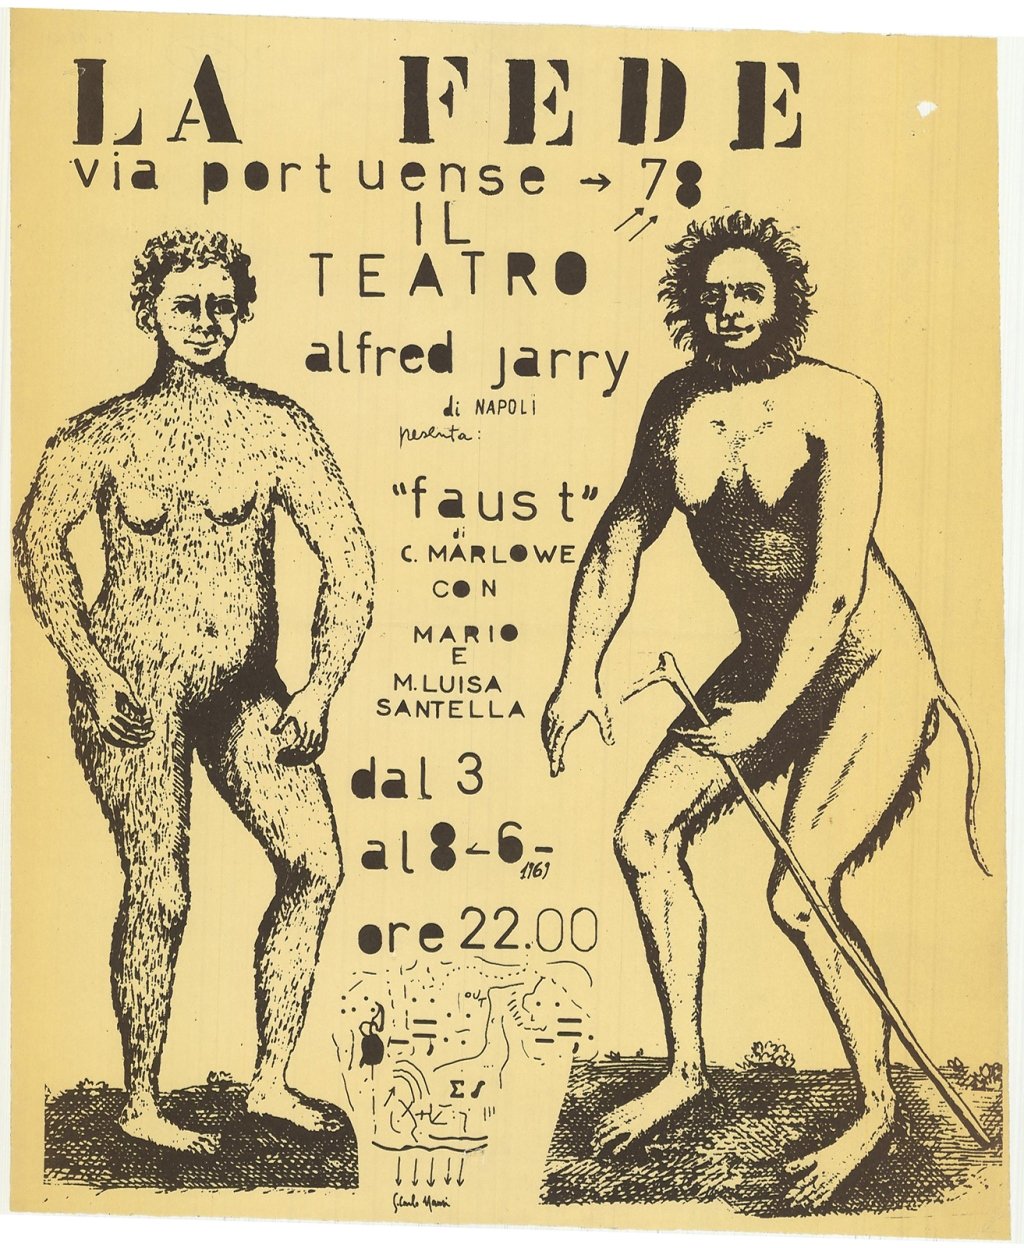 LA FEDE
via portuense → 78
IL
TEATRO
alfred jarry
di NAPOLI
presenta:
"faust"
di
C. MARLOWE
CON
MARIO
E
M. LUISA
SANTELLA
dal 3
al 8-6-
1969
ore 22.00
OUT